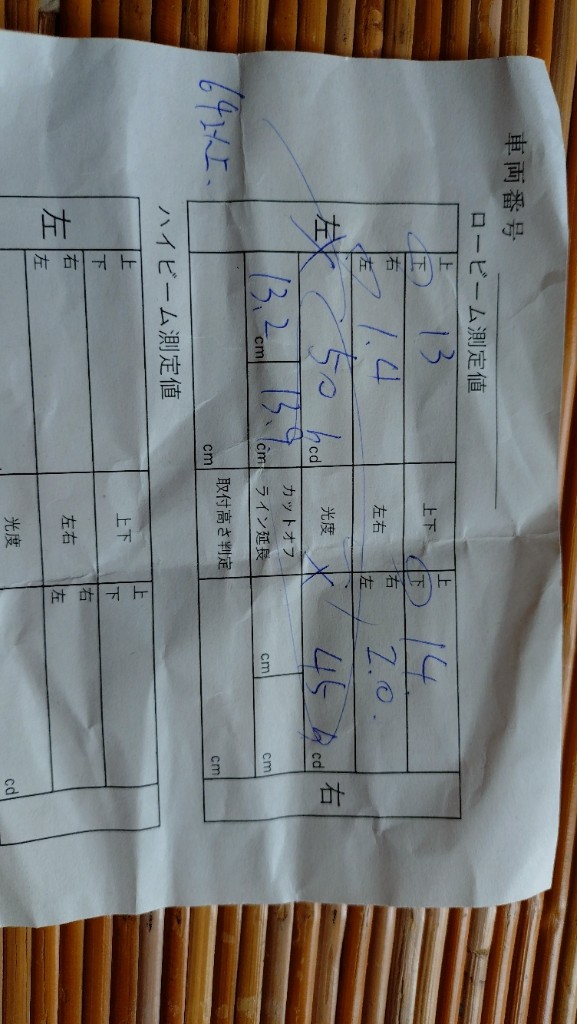 車両番号
ロービーム測定値
左 上 下 13 上下 上 下 14 右
右 左 1.4 左右 右 左 2.0.
× 50 h cd 光度 × 45 h cd
13.2 cm 13.9 cm カットオフライン延長 cm cm
cm 取付高さ判定 cm
64以上.
ハイビーム測定値
左 上 下 上下 上 下
右 左 左右 右 左
光度 cd